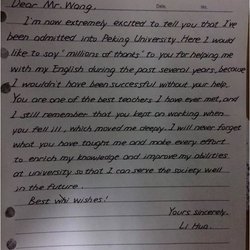 Dear Mr. Wang,
Date. No.
I'm now extremely excited to tell you that I've
been admitted into Peking University. Here I would
like to say "millions of thanks" to you for helping me
with my English during the past several years, because
I wouldn't have been successful without your help.
You are one of the best teachers I have ever met, and
I still remember that you kept on working when
you fell ill, which moved me deepay. I will never forget
what you have taught me and make every effort
to enrich my knowledge and improve my abilities
at university so that I can serve the society well
in the future.
Best wishes!
Yours sincerely,
Li Hua.